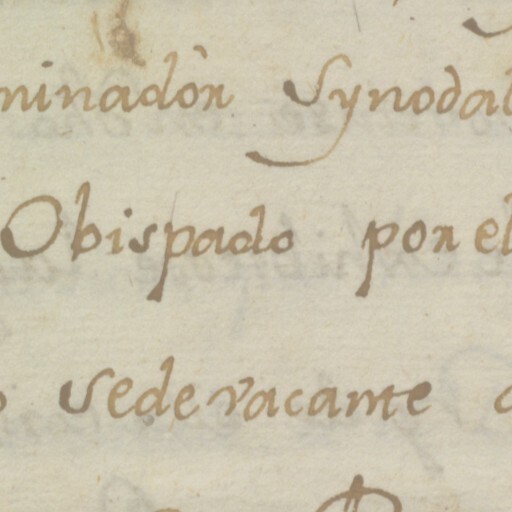 minadòr Synodal
Obispado por el
o Sedevacante